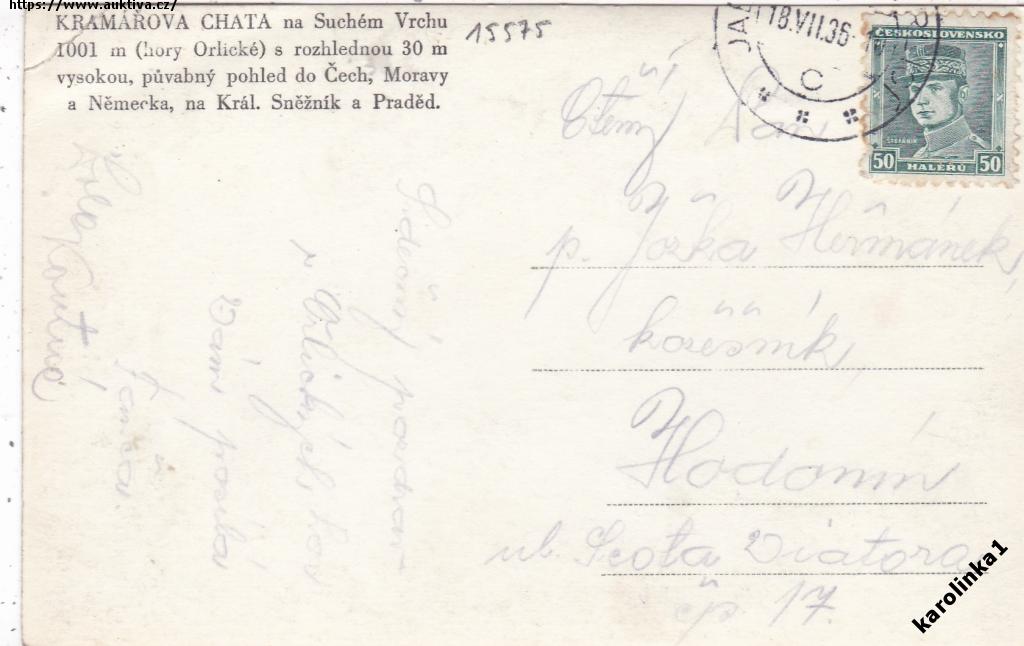 https://www.auktiva.cz/
KRAMÁŘOVA CHATA na Suchém Vrchu
1001 m (hory Orlické) s rozhlednou 30 m
vysokou, půvabný pohled do Čech, Moravy
a Německa, na Král. Sněžník a Praděd.
15575
18.VII.36
ČESKOSLOVENSKO
ŠTEFÁNIK
50 HALÉŘŮ 50
Ctěný Pán
p. Jožka Heřmánek,
kožešník,
Hodonín
ul. Scota Viatora
čp. 17.
Srdečný pozdrav
z Orlických hor
Vám posílá
karolinka1